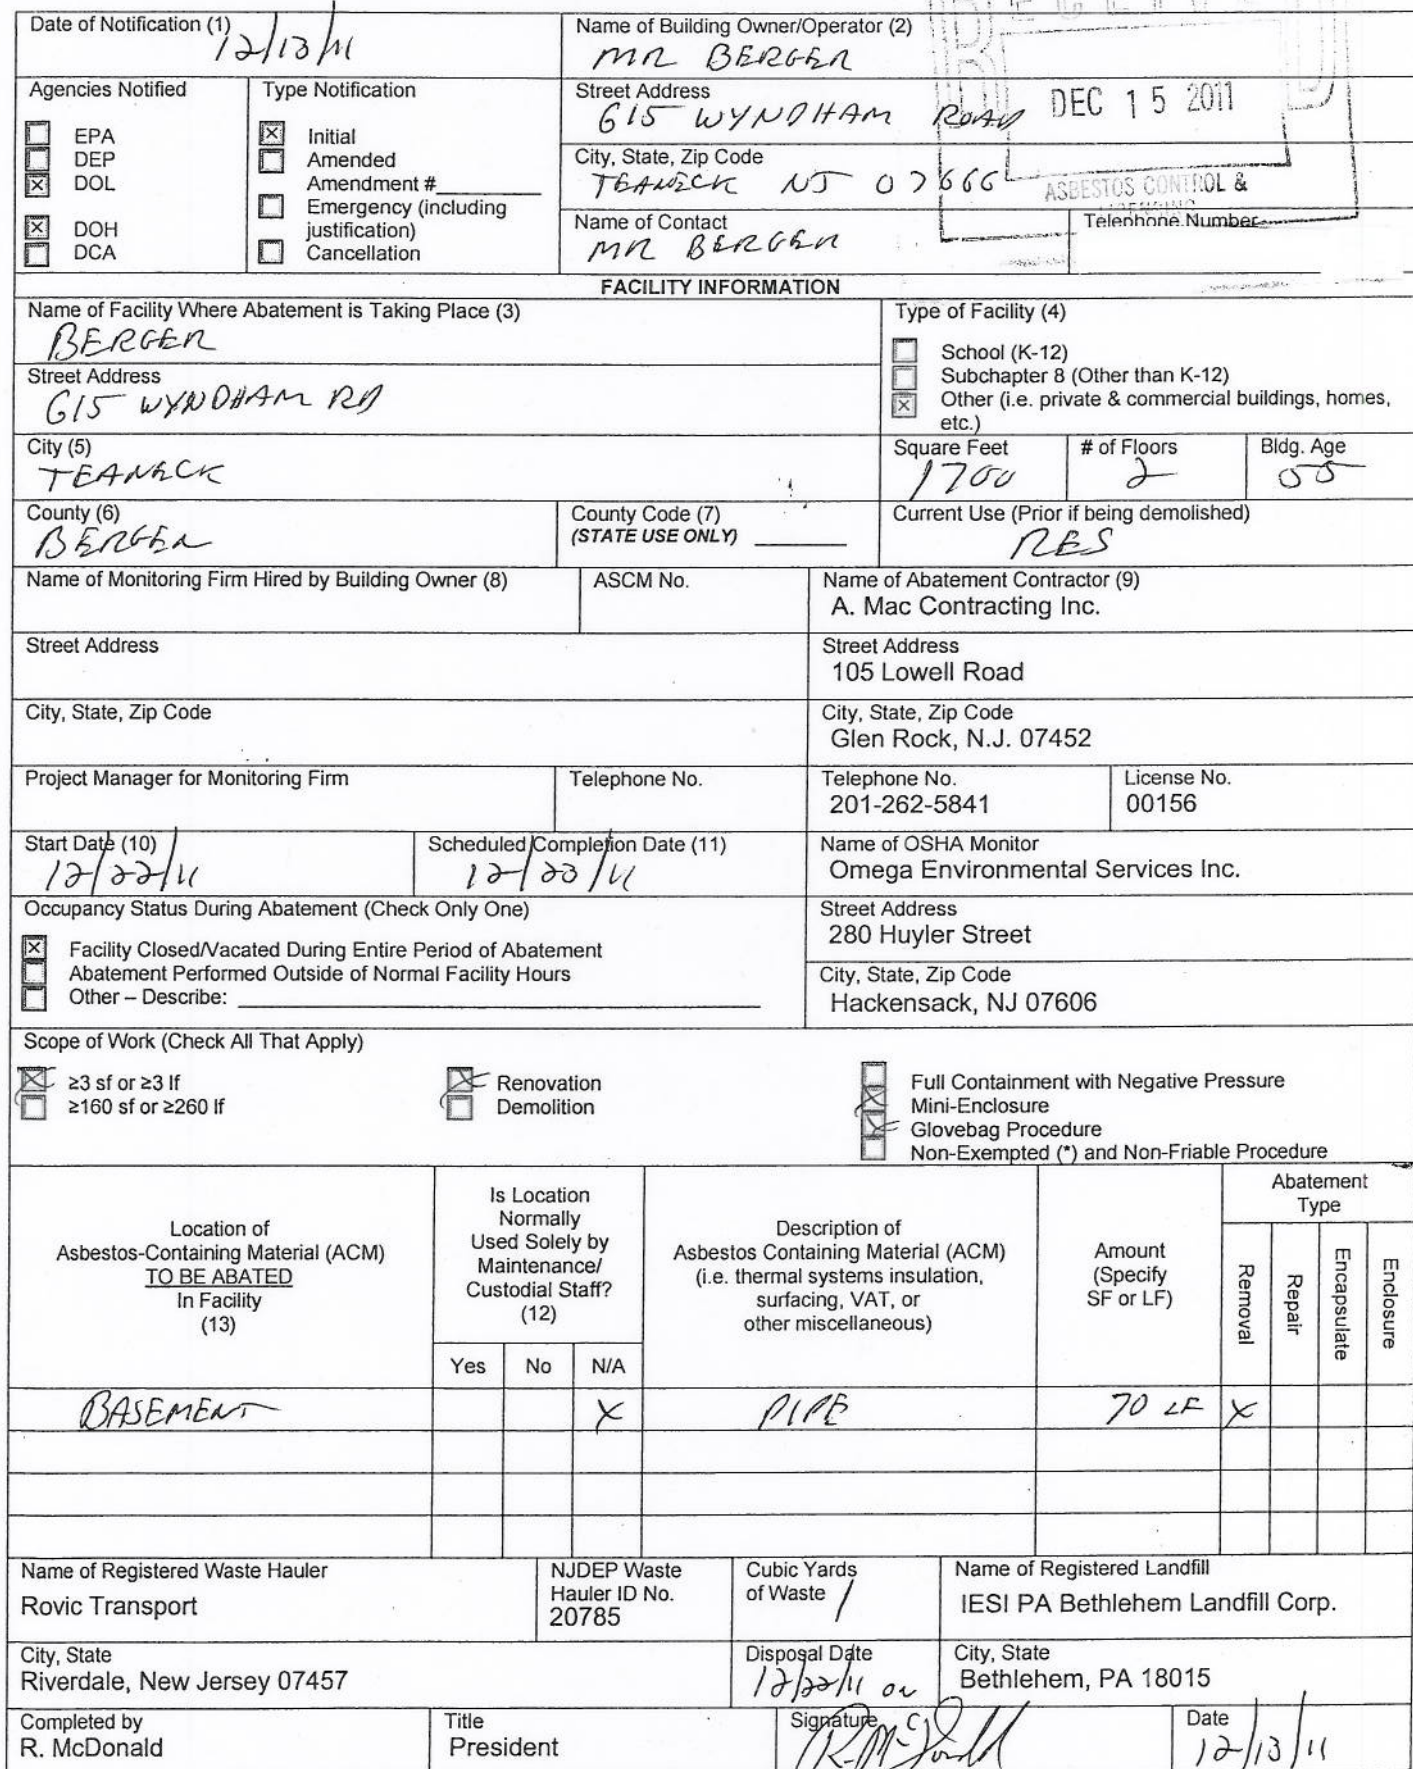 Date of Notification (1) 12/13/11
Name of Building Owner/Operator (2)
MR BERGER
Agencies Notified
EPA
DEP
DOL
DOH
DCA
Type Notification
Initial
Amended
Amendment #
Emergency (including
justification)
Cancellation
Street Address
615 WYNDHAM ROAD
DEC 15 2011
City, State, Zip Code
TEANECK NJ 07666
ASBESTOS CONTROL &
LICENSING
Name of Contact
MR BERGER
Telephone Number
FACILITY INFORMATION
Name of Facility Where Abatement is Taking Place (3)
BERGER
Type of Facility (4)
School (K-12)
Subchapter 8 (Other than K-12)
Other (i.e. private & commercial buildings, homes,
etc.)
Street Address
615 WYNDHAM RD
City (5)
TEANECK
Square Feet
1700
# of Floors
2
Bldg. Age
55
County (6)
BERGEN
County Code (7)
(STATE USE ONLY)
Current Use (Prior if being demolished)
RES
Name of Monitoring Firm Hired by Building Owner (8)
ASCM No.
Name of Abatement Contractor (9)
A. Mac Contracting Inc.
Street Address
Street Address
105 Lowell Road
City, State, Zip Code
City, State, Zip Code
Glen Rock, N.J. 07452
Project Manager for Monitoring Firm
Telephone No.
Telephone No.
201-262-5841
License No.
00156
Start Date (10)
12/22/11
Scheduled Completion Date (11)
12/23/11
Name of OSHA Monitor
Omega Environmental Services Inc.
Occupancy Status During Abatement (Check Only One)
Facility Closed/Vacated During Entire Period of Abatement
Abatement Performed Outside of Normal Facility Hours
Other – Describe:
Street Address
280 Huyler Street
City, State, Zip Code
Hackensack, NJ 07606
Scope of Work (Check All That Apply)
≥3 sf or ≥3 lf
≥160 sf or ≥260 lf
Renovation
Demolition
Full Containment with Negative Pressure
Mini-Enclosure
Glovebag Procedure
Non-Exempted (*) and Non-Friable Procedure
Location of
Asbestos-Containing Material (ACM)
TO BE ABATED
In Facility
(13)
Is Location
Normally
Used Solely by
Maintenance/
Custodial Staff?
(12)
Yes No N/A
Description of
Asbestos Containing Material (ACM)
(i.e. thermal systems insulation,
surfacing, VAT, or
other miscellaneous)
Amount
(Specify
SF or LF)
Abatement
Type
Removal
Repair
Encapsulate
Enclosure
BASEMENT X PIPE 70 LF X
Name of Registered Waste Hauler
Rovic Transport
NJDEP Waste
Hauler ID No.
20785
Cubic Yards
of Waste 1
Name of Registered Landfill
IESI PA Bethlehem Landfill Corp.
City, State
Riverdale, New Jersey 07457
Disposal Date
12/22/11 or
City, State
Bethlehem, PA 18015
Completed by
R. McDonald
Title
President
Signature
R. McDonald
Date
12/13/11